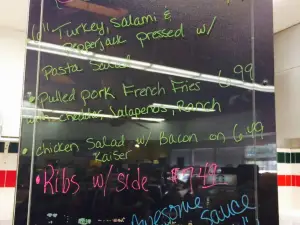 6" Turkey, Salami &
Pepperjack pressed w/
Pasta Salad
• Pulled pork French Fries 6.99
with cheddar, Jalapenos, Ranch
• chicken Salad w/ Bacon on 6.49
Kaiser
• Ribs w/ side $7.49
Awesome sauce